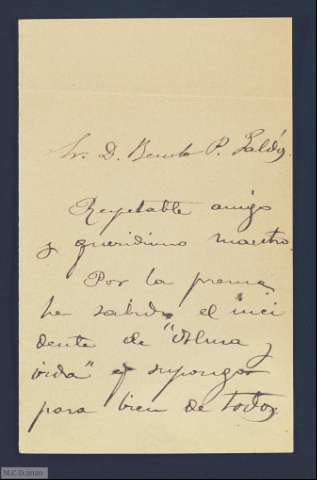 Sr. D. Benito P. Galdós.
Respetable amigo
y queridísimo maestro:
Por la prensa
he sabido el inci
dente de "Alma y
vida" q supongo
para bien de todos